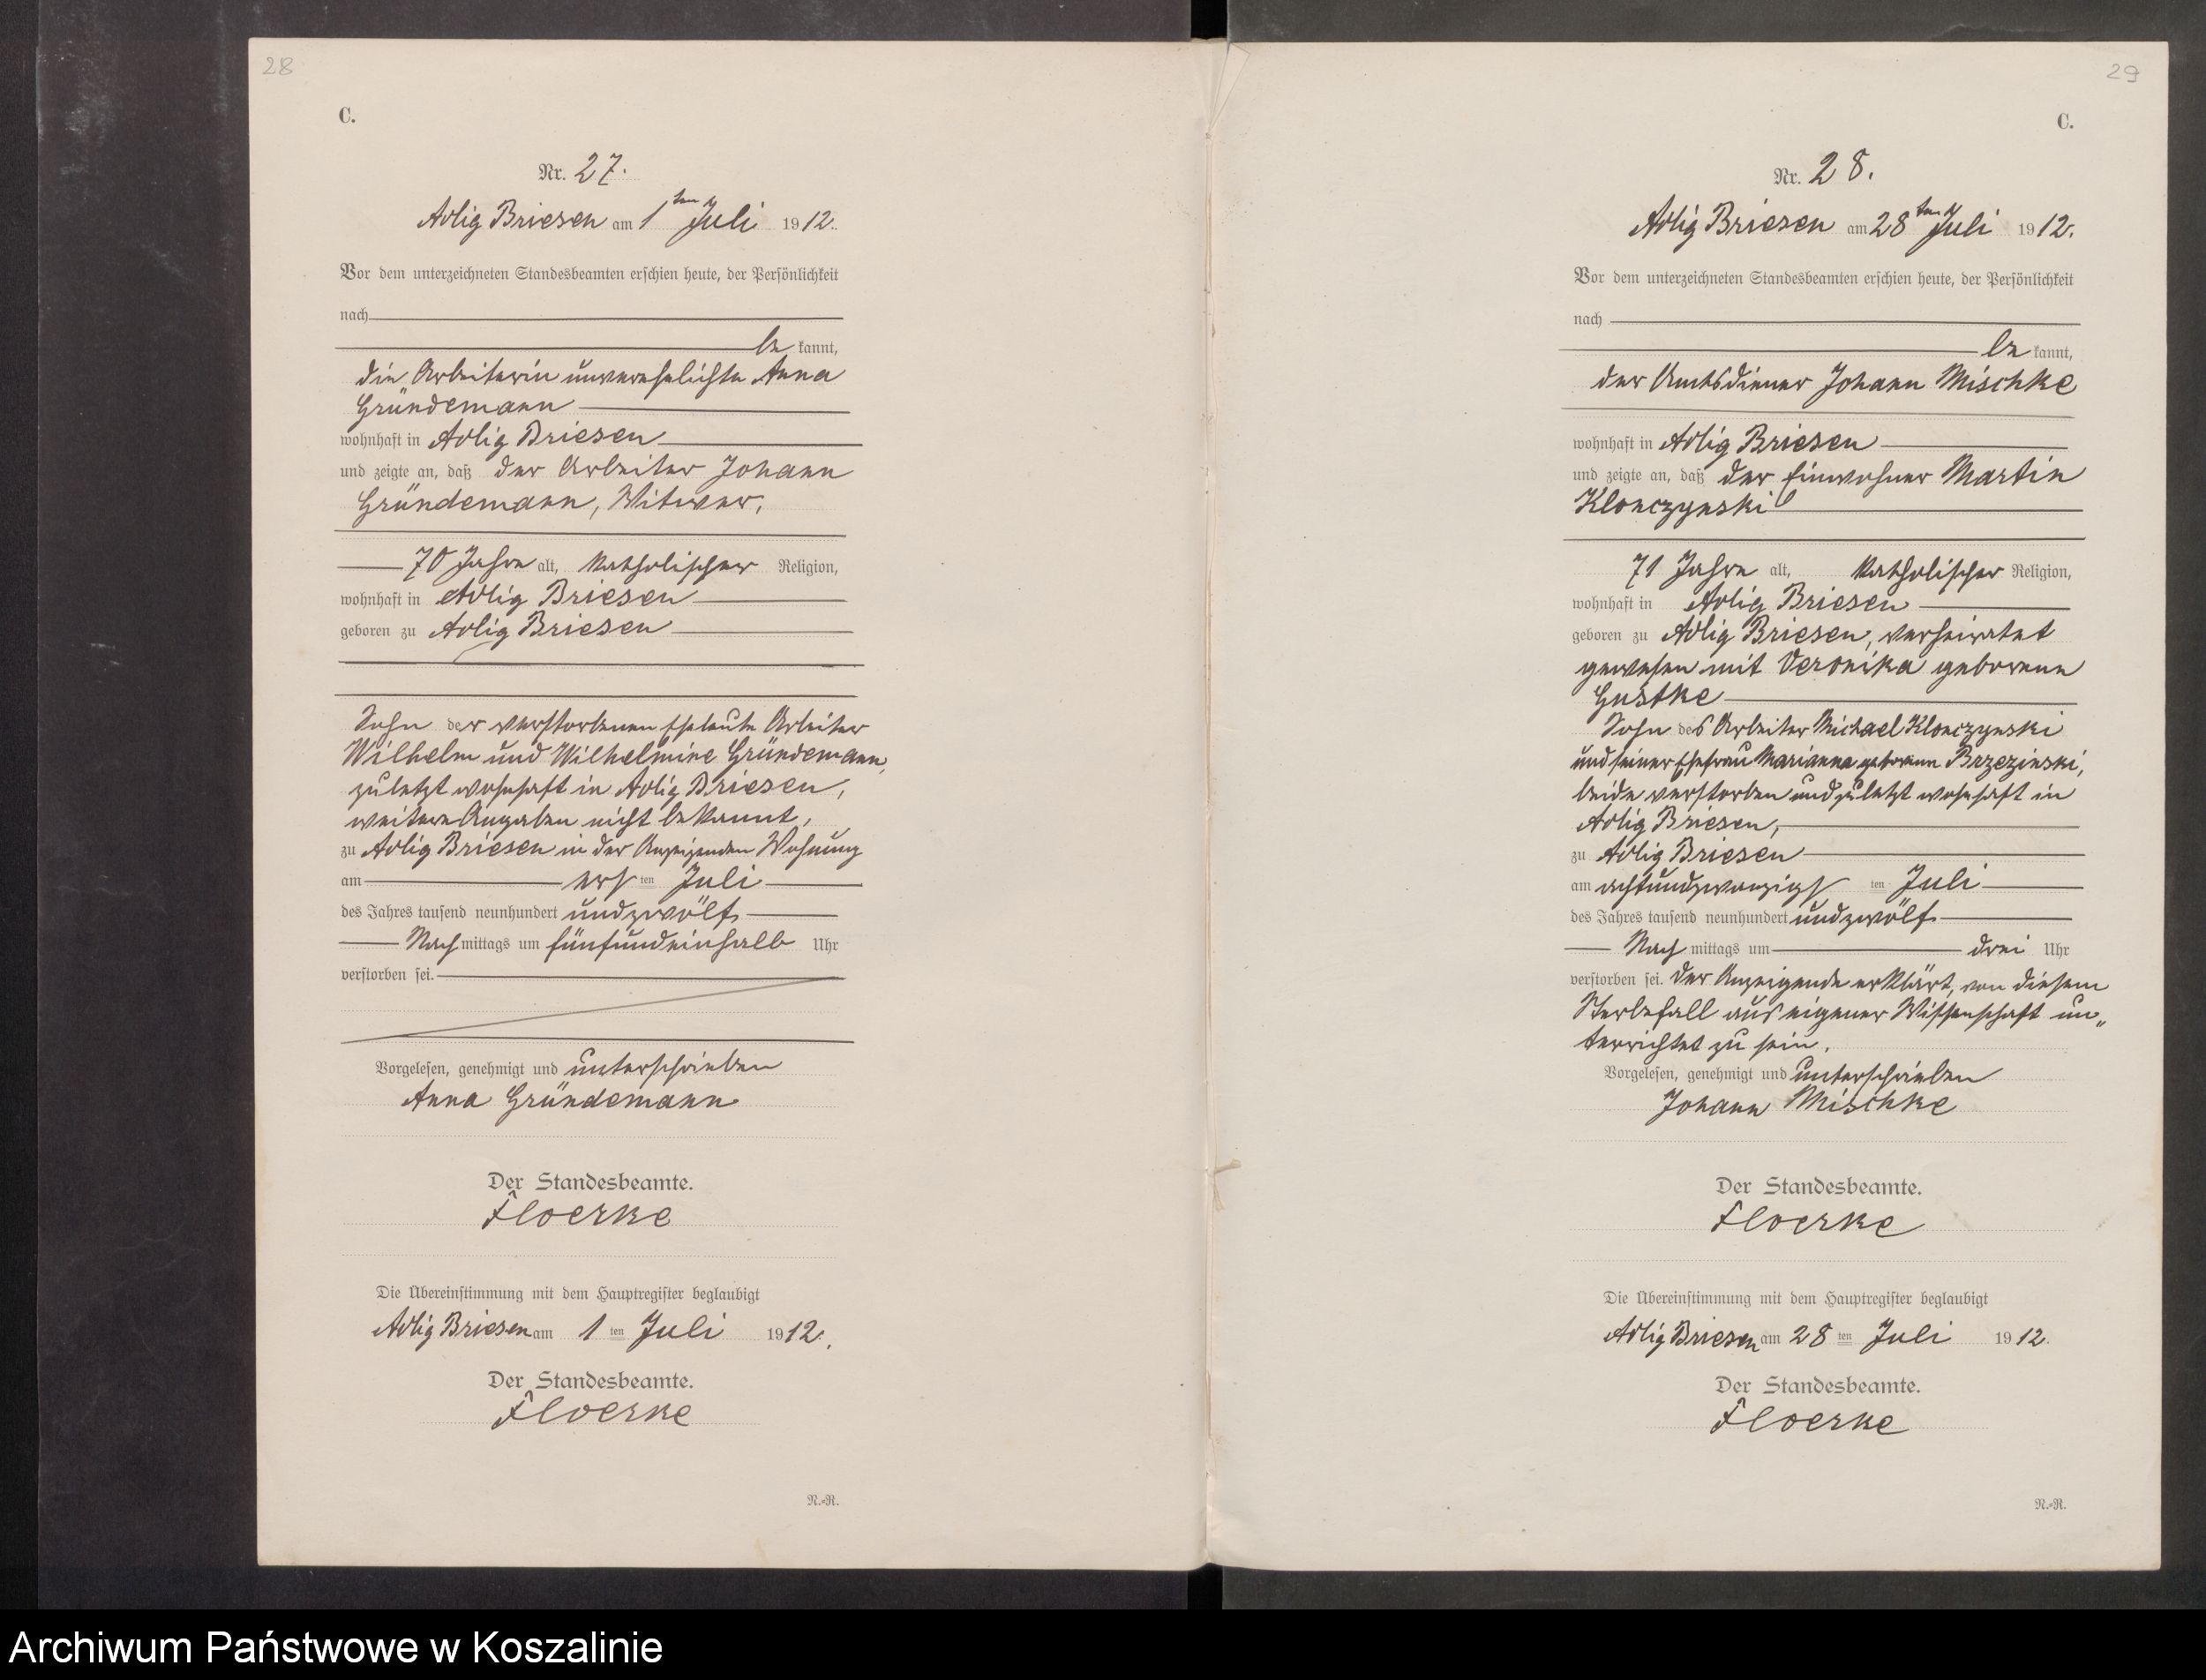 28
C.
Nr. 27.
Adlig Briesen am 1ten Juli 1912.
Vor dem unterzeichneten Standesbeamten erschien heute, der Persönlichkeit
nach
be kannt,
die Arbeiterin unverehelichte Anna
Gründemann
wohnhaft in Adlig Briesen
und zeigte an, daß der Arbeiter Johann
Gründemann, Witwer,
70 Jahre alt, katholischer Religion,
wohnhaft in Adlig Briesen
geboren zu Adlig Briesen
Sohn der verstorbenen Eheleute Arbeiter
Wilhelm und Wilhelmine Gründemann,
zuletzt wohnhaft in Adlig Briesen,
weitere Angaben nicht bekannt,
zu Adlig Briesen in der Anzeigenden Wohnung
am ers ten Juli
des Jahres tausend neunhundert und zwölf
Nach mittags um fünfundeinhalb Uhr
verstorben sei.
Vorgelesen, genehmigt und unterschrieben
Anna Gründemann
Der Standesbeamte.
Floerke
Die Übereinstimmung mit dem Hauptregister beglaubigt
Adlig Briesen am 1 ten Juli 1912.
Der Standesbeamte.
Floerke
N.-R.
29
C.
Nr. 28.
Adlig Briesen am 28ten Juli 1912.
Vor dem unterzeichneten Standesbeamten erschien heute, der Persönlichkeit
nach
be kannt,
der Amtsdiener Johann Mischke
wohnhaft in Adlig Briesen
und zeigte an, daß der Einwohner Martin
Klonczynski
71 Jahre alt, katholischer Religion,
wohnhaft in Adlig Briesen
geboren zu Adlig Briesen, verheiratet
gewesen mit Veronika geborene
Gustke
Sohn des Arbeiter Michael Klonczynski
und seiner Ehefrau Marianna geborenen Brzezinski,
beide verstorben und zuletzt wohnhaft in
Adlig Briesen,
zu Adlig Briesen
am achtundzwanzigs ten Juli
des Jahres tausend neunhundert und zwölf
Nach mittags um drei Uhr
verstorben sei. Der Anzeigende erklärt, von diesem
Sterbefall aus eigener Wissenschaft un„
terrichtet zu sein.
Vorgelesen, genehmigt und unterschrieben
Johann Mischke
Der Standesbeamte.
Floerke
Die Übereinstimmung mit dem Hauptregister beglaubigt
Adlig Briesen am 28 ten Juli 1912.
Der Standesbeamte.
Floerke
N.-R.
Archiwum Państwowe w Koszalinie